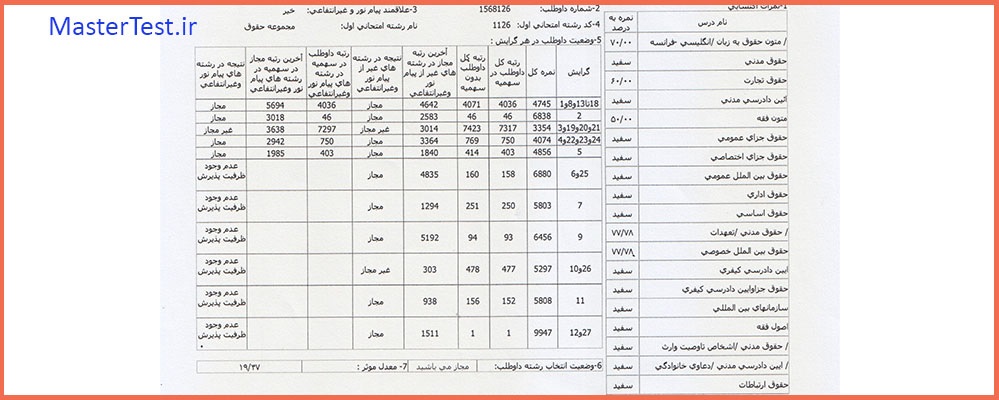 MasterTest.ir
1-نمرات اكتسابي
نام درس	نمره به درصد
/ متون حقوق به زبان /انگليسي -فرانسه	٧٠/٠٠
حقوق مدني	سفيد
حقوق تجارت	۶٠/٠٠
آئين دادرسي مدني	سفيد
متون فقه	۵٠/٠٠
حقوق جزاي عمومي	سفيد
حقوق جزاي اختصاصي	سفيد
حقوق بين الملل عمومي	سفيد
حقوق اداري	سفيد
حقوق اساسي	سفيد
/ حقوق مدني /تعهدات	٧٧/٧٨
حقوق بين الملل خصوصي	٧٧/٧٨
آيين دادرسي كيفري	سفيد
حقوق جزاوآيين دادرسي كيفري	سفيد
سازمانهاي بين المللي	سفيد
اصول فقه	سفيد
/ حقوق مدني /اشخاص تاوصيت وارث	سفيد
/ آيين دادرسي مدني /دعاوي خانوادگي	سفيد
حقوق ارتباطات	سفيد
2-شماره داوطلب: 1568126	3-علاقمند پيام نور و غيرانتفاعي: خير
4-كد رشته امتحاني اول: 1126	نام رشته امتحاني اول: مجموعه حقوق
5-وضعيت داوطلب در هر گرايش :
گرايش	نمره كل	رتبه كل داوطلب در سهميه	رتبه كل داوطلب بدون سهميه	آخرين رتبه مجاز در رشته هاي غير از پيام نور وغيرانتفاعي	نتيجه در رشته هاي غير از پيام نور وغيرانتفاعي	رتبه داوطلب در سهميه در رشته هاي پيام نور وغيرانتفاعي	آخرين رتبه مجاز در سهميه در رشته هاي پيام نور وغيرانتفاعي	نتيجه در رشته هاي پيام نور وغيرانتفاعي
18تا13و8و1	4745	4036	4071	4642	مجاز	4036	5694	مجاز
2	6838	46	46	2583	مجاز	46	3018	مجاز
21و20و19و3	3354	7317	7423	3014	غير مجاز	7297	3638	غير مجاز
24و23و22و4	4074	750	769	3364	مجاز	750	2942	مجاز
5	4856	403	414	1840	مجاز	403	1985	مجاز
25و6	6880	158	160	4835	مجاز	عدم وجود ظرفيت پذيرش
7	5803	250	251	1294	مجاز	عدم وجود ظرفيت پذيرش
9	6456	93	94	5192	مجاز	عدم وجود ظرفيت پذيرش
26و10	5297	477	478	303	غير مجاز	عدم وجود ظرفيت پذيرش
11	5808	152	156	938	مجاز	عدم وجود ظرفيت پذيرش
27و12	9947	1	1	1511	مجاز	عدم وجود ظرفيت پذيرش
6-وضعيت انتخاب رشته داوطلب: مجاز مي باشيد	7- معدل موثر : ١٩/٣٧